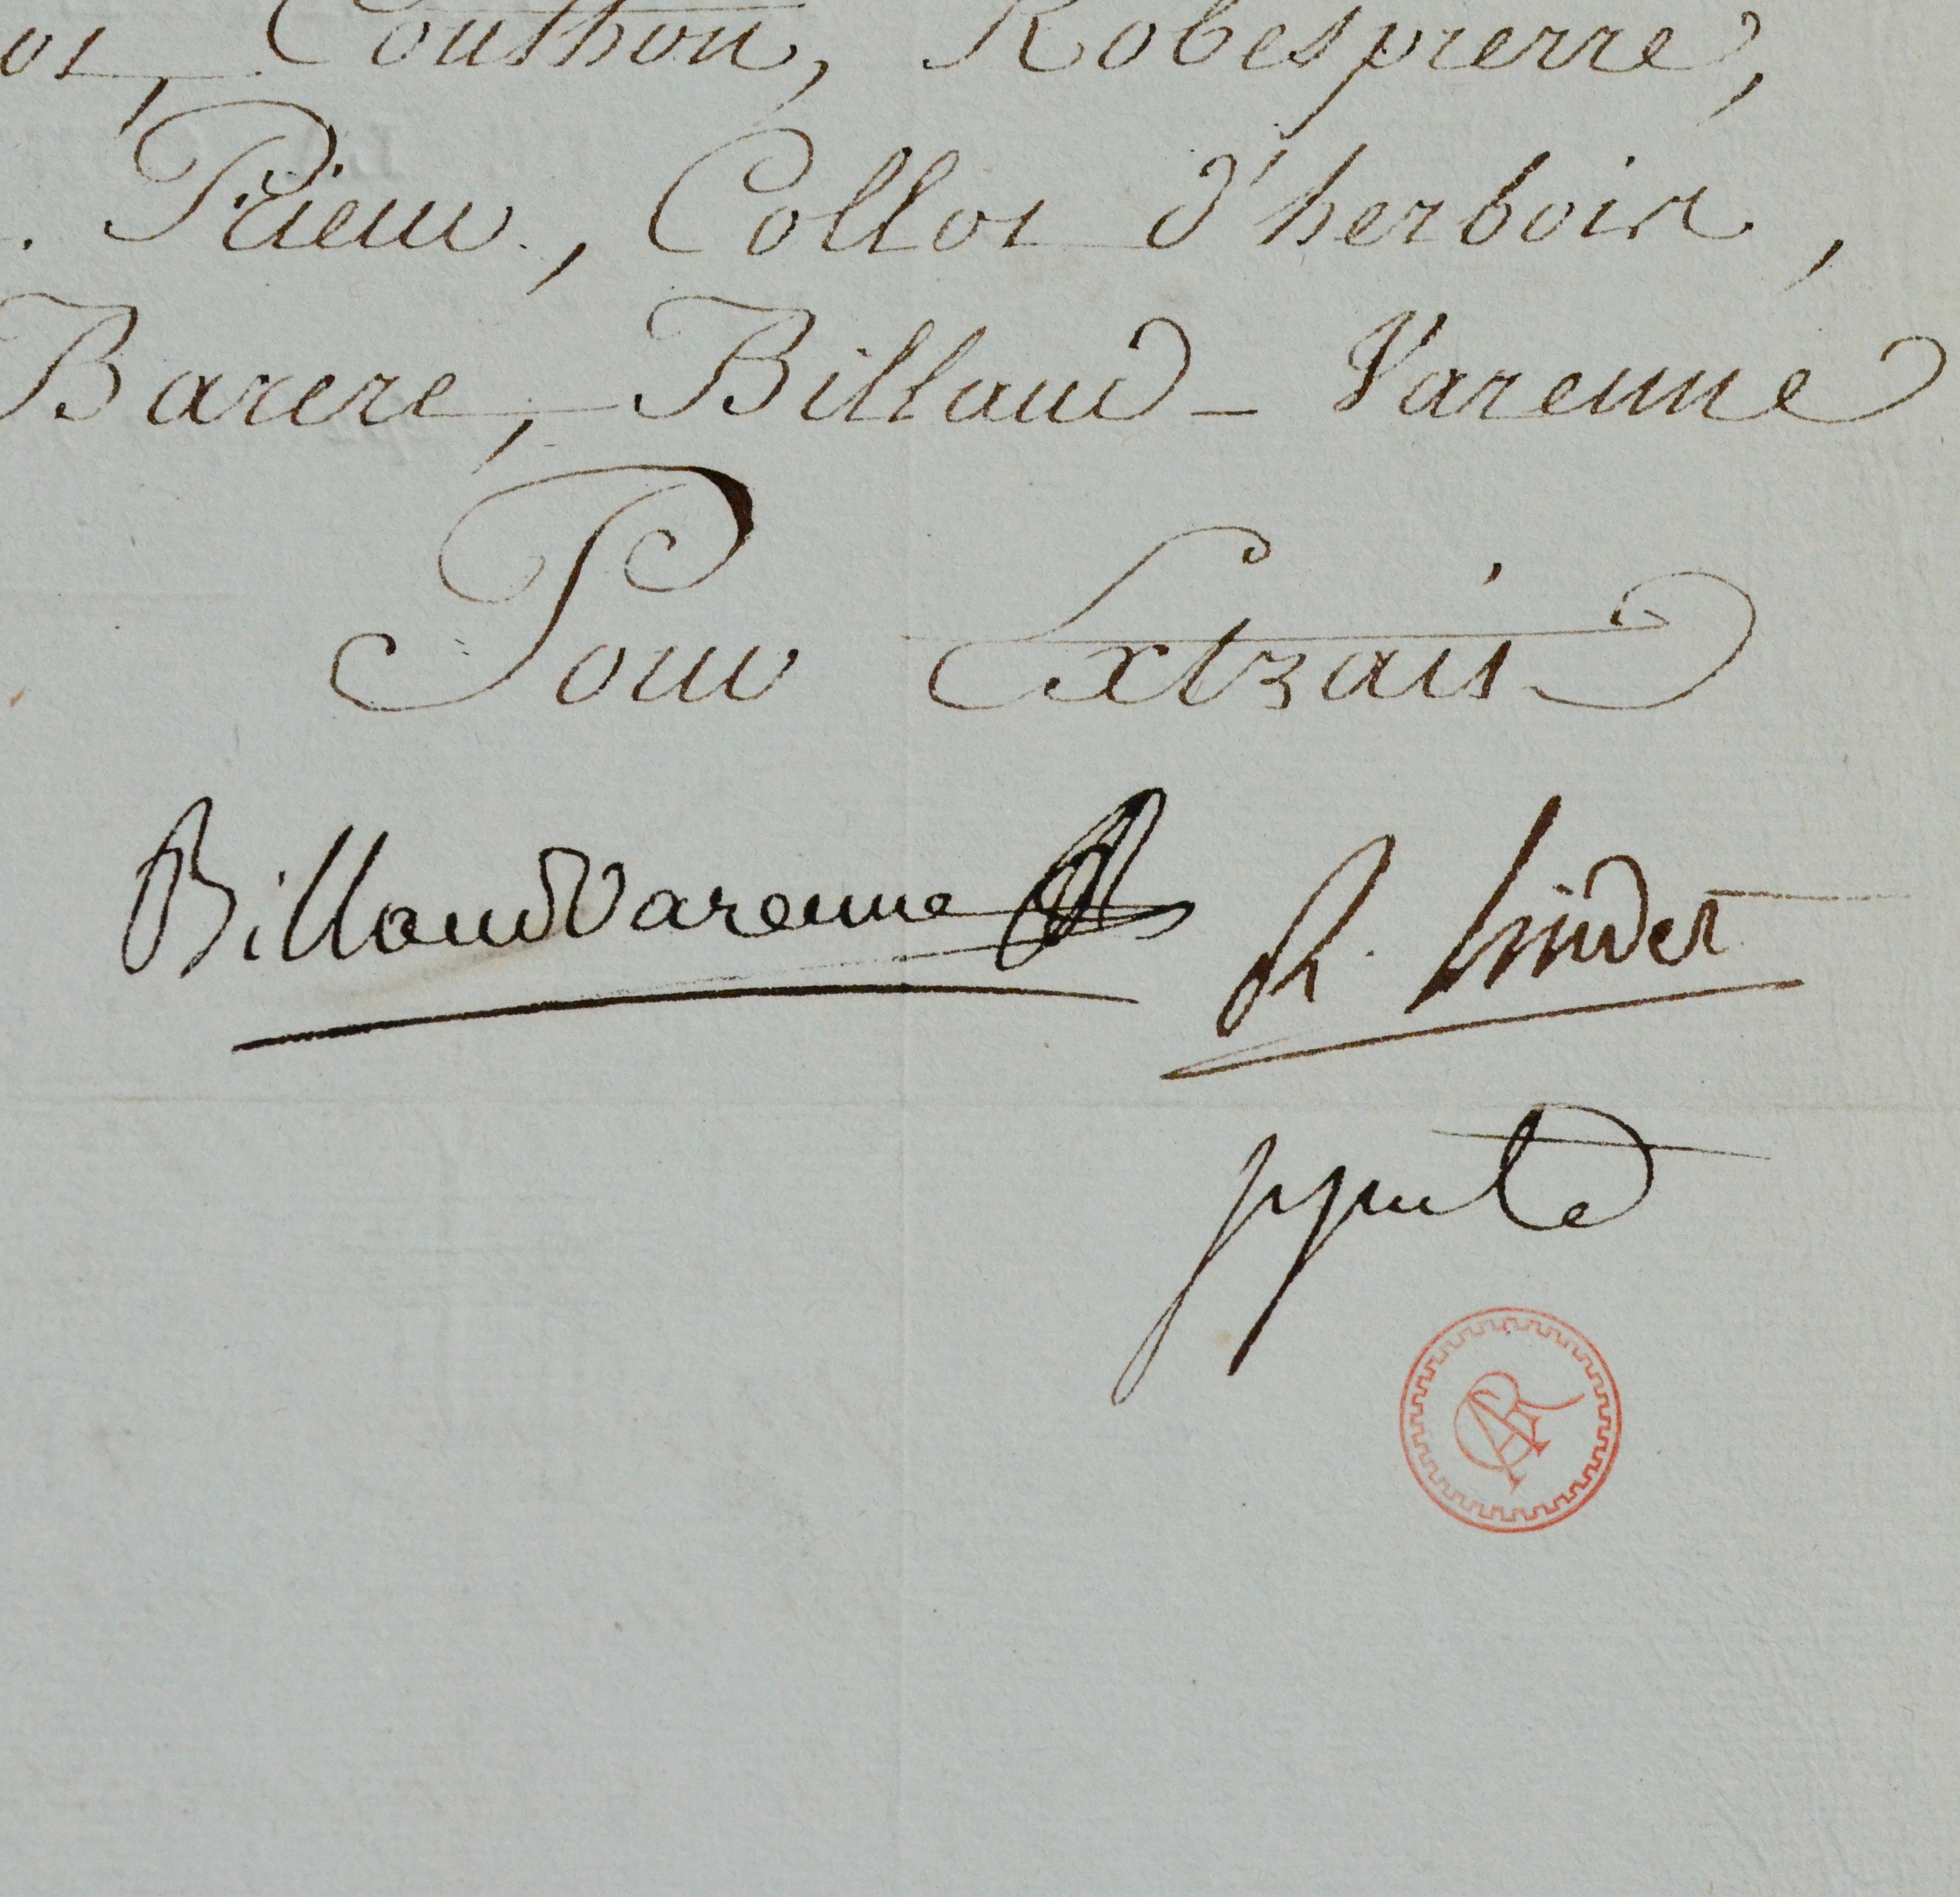 Couthon, Robespierre,
. Prieur, Collot d'herbois,
Barere, Billaud - Varenne
Pour Extrait
BillaudVarenne R. Lindet